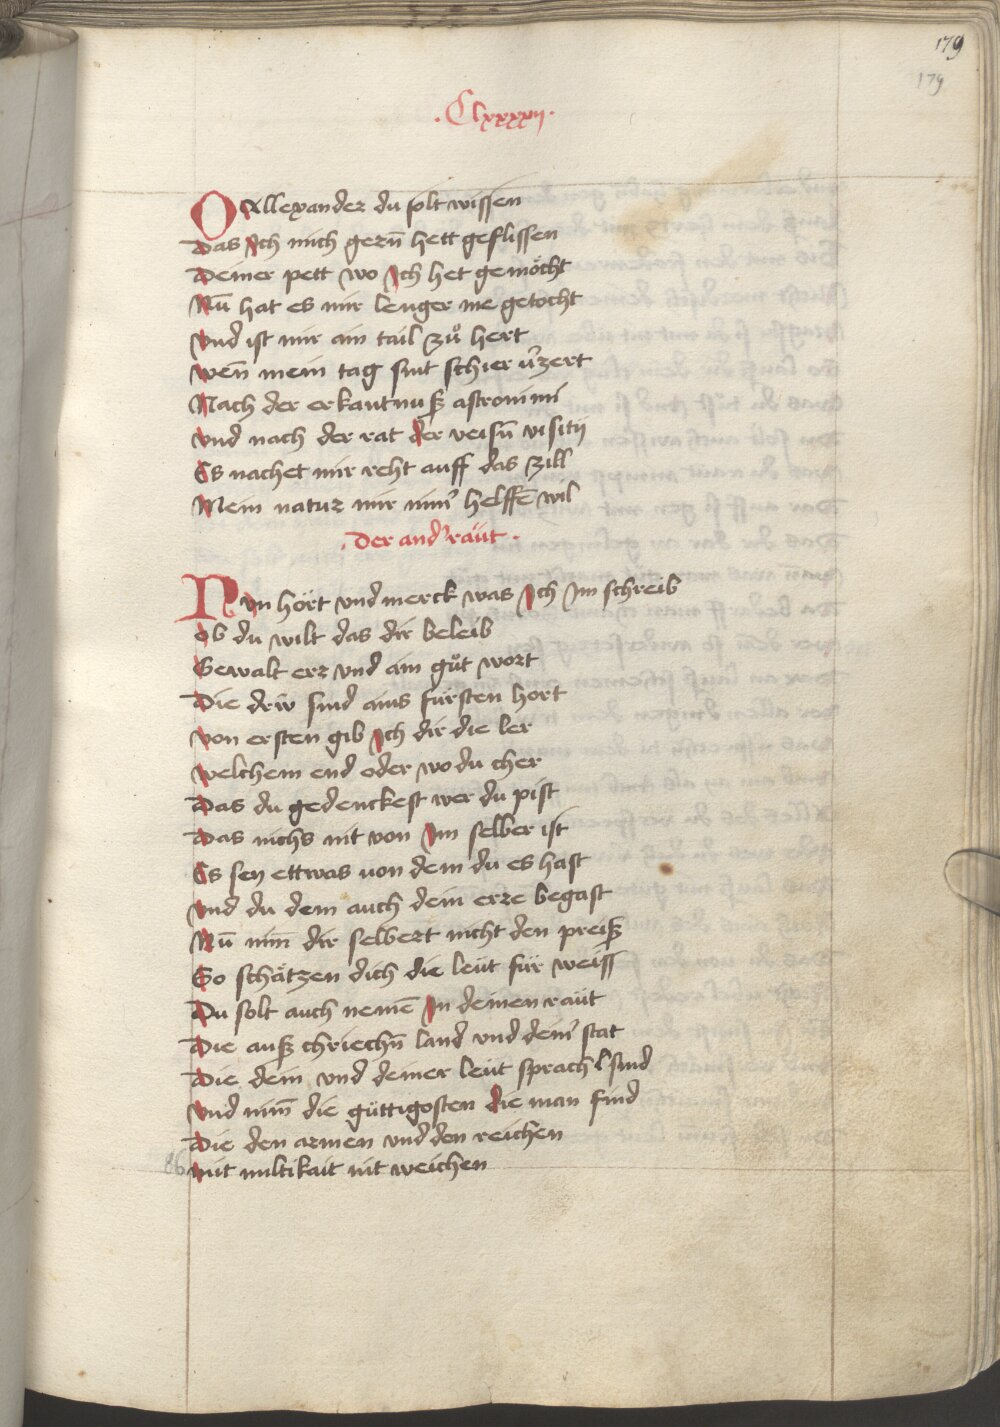 179
179
.Clxxxxij.
O Allexander du solt wissen
Das Ich mich gern̄ hett geflissen
Deiner pett wo Ich het gemöcht
Nū hat es mir lenger nie getocht
Vnd ist mir ain tail zů hert
Wen̄ mein tag sint schier v̓zert
Nach der erkantnuß astronimi
Vnd nach der rat der veisn̄ visitij
Es nachet mir reht auff das zill
Mein natur mir nim̓ helffē wil
.Der and̓ raüt.
Nvn hört vnd merck was Ich Im schreib
Ob du wilt das dir beleib
Gewalt erz vnd ain gůt wort
Die driv sind ains fürsten hort
Von ersten gib Ich dir die ler
Welchem end oder wo du cher
Das du gedenckest wer du pist
Das nichs nit von Im selber ist
Es sey ettwas von dem du es hast
Vnd du dem auch dein erze begast
Nū nim̄ dir selbert nicht den preiß
So schätzen dich die leüt für weiß
Du solt auch nemē In deinen raüt
Die auß chriechn̄ land vnd dein̓ stat
Die dein vnd deiner leüt sprach sind
Vnd nim̄ die güttigosten die man find
Die den armen vnd den reichen
86 Mit miltikait nit weichen